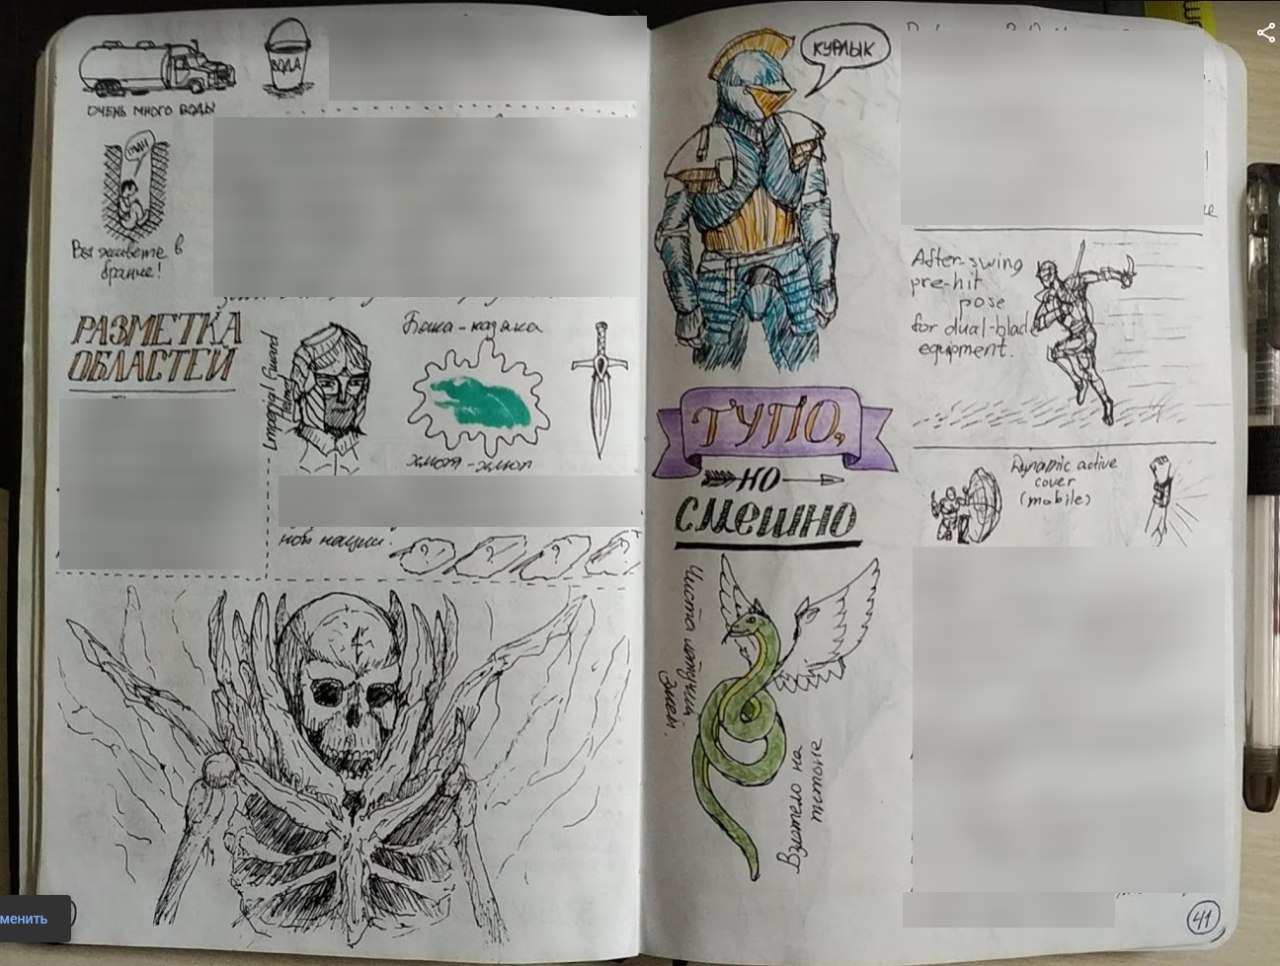 ОЧЕНЬ МНОГО ВОДЫ
ВОДА
Вы живёте в
РАЗМЕТКА
ОБЛАСТЕЙ
Imperial Guard
Helmet
Бошка-
КУРЛЫК
ТУПО,
НО
СМЕШНО
Чисто летучий
змей.
Взлетело на
питоне
After-swing
pre-hit
pose
for dual-blade
equipment.
Dynamic active
cover
(mobile)
41
менить